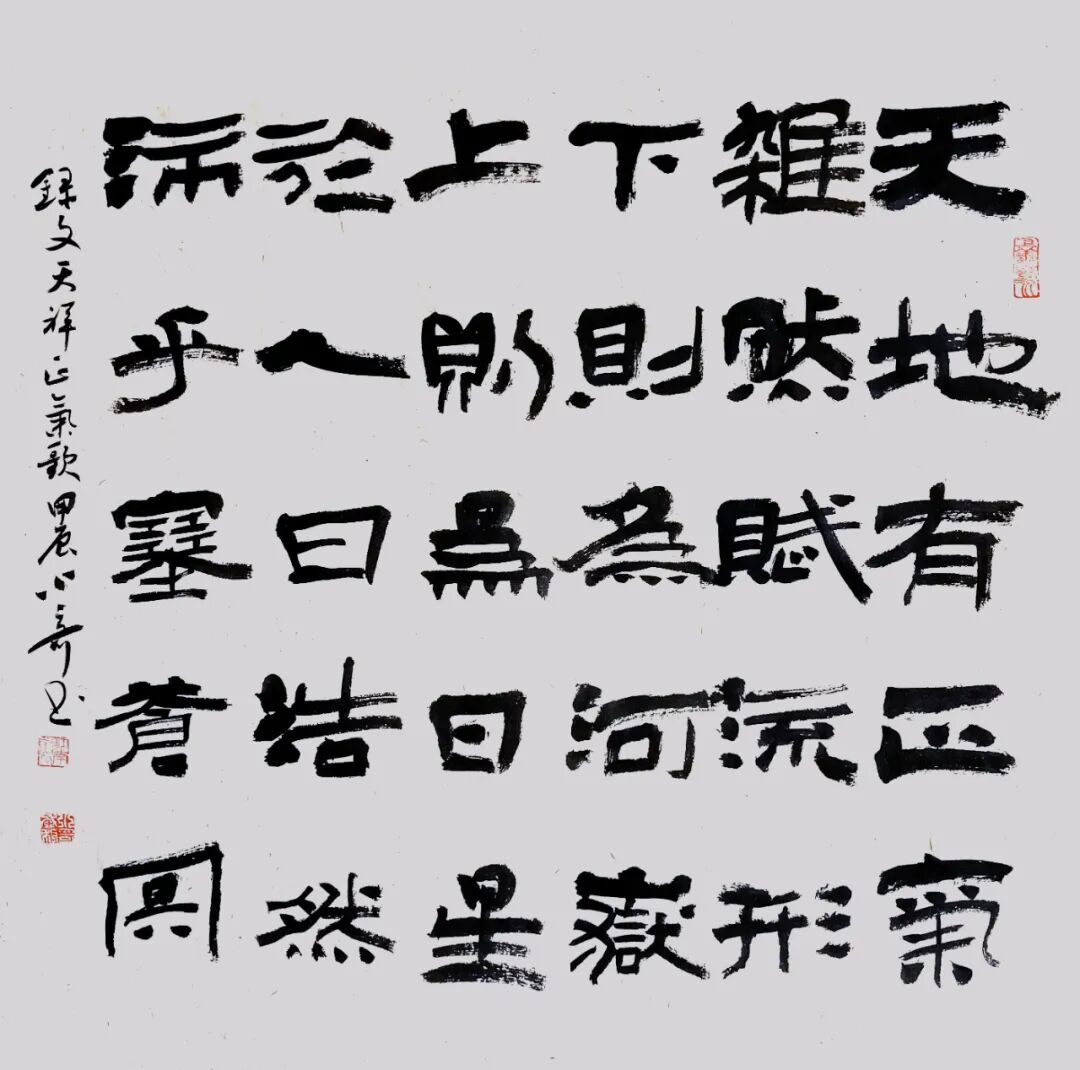 天地有正氣
雜然賦流形
下則為河嶽
上則爲日星
於人曰浩然
沛乎塞蒼冥
録文天祥正氣歌甲辰书